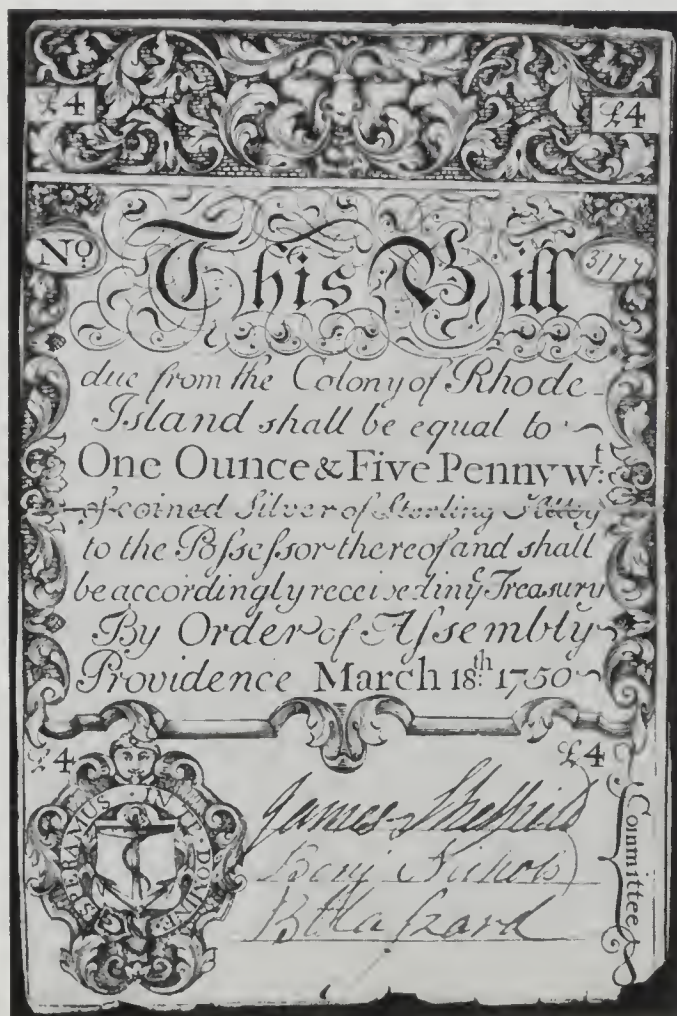 £4 £4
Nº This Bill 3177
due from the Colony of Rhode
Island shall be equal to
One Ounce & Five Pennywt:
of coined Silver of Sterling Alloy
to the Poſseſsor thereof and shall
be accordingly received in ye Treasury
By Order of Aſsembly
Providence March 18th: 1750
£4 £4
IN TE DOMINE SPERAMUS
James Sheffield
Benj Nichols
B Haſzard
Committee